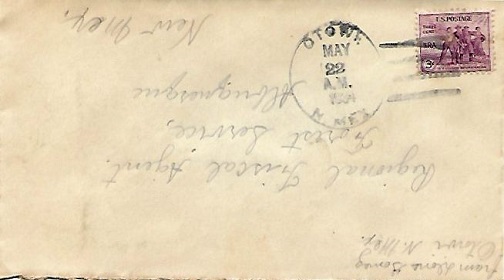 U.S. POSTAGE
THREE CENTS
NRA
3¢
OTOWI
MAY
22
A.M.
1934
N. MEX.
From
Otowi N. Mex.
Regional Fiscal Agent.
Forest Service,
Albuquerque
New Mex,